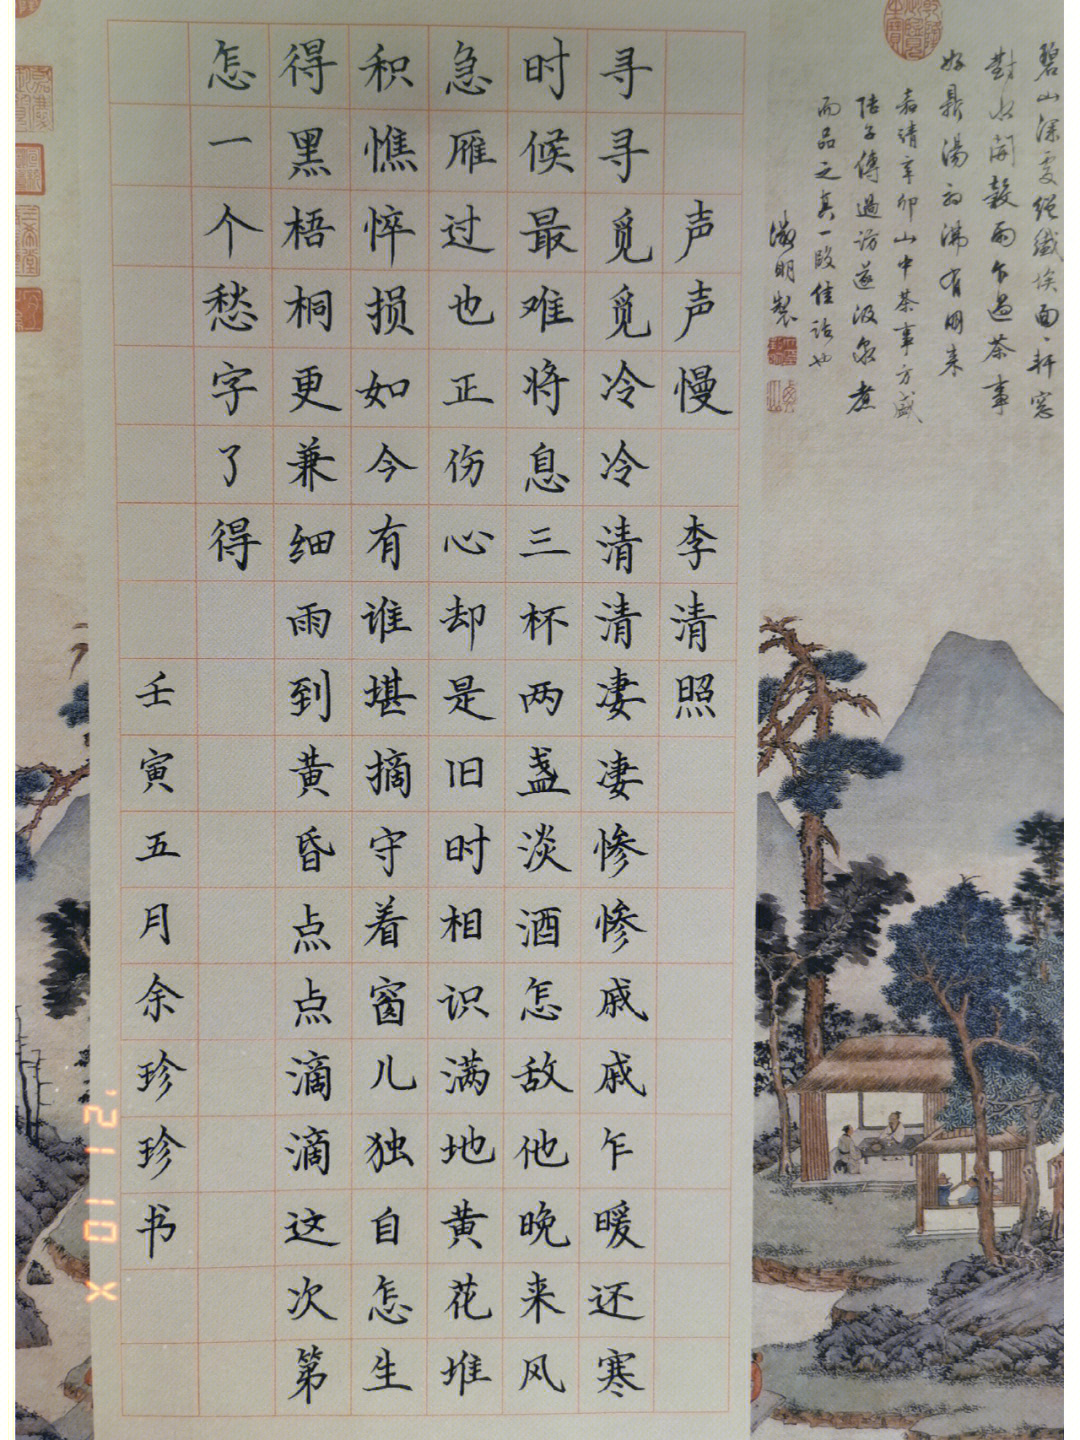 碧山深處絕纖埃面〻軒窓
對水開穀雨乍過茶事
好鼎湯初沸有朋来
嘉靖辛卯山中茶事方盛
陸子傳過訪遂汲泉煮
而品之真一段佳話也
徵明製
声声慢 李清照
寻寻觅觅冷冷清清凄凄惨惨戚戚乍暖还寒
时候最难将息三杯两盏淡酒怎敌他晚来风
急雁过也正伤心却是旧时相识满地黄花堆
积憔悴损如今有谁堪摘守着窗儿独自怎生
得黑梧桐更兼细雨到黄昏点点滴滴这次第
怎一个愁字了得
壬寅五月余珍珍书
'21 10 X